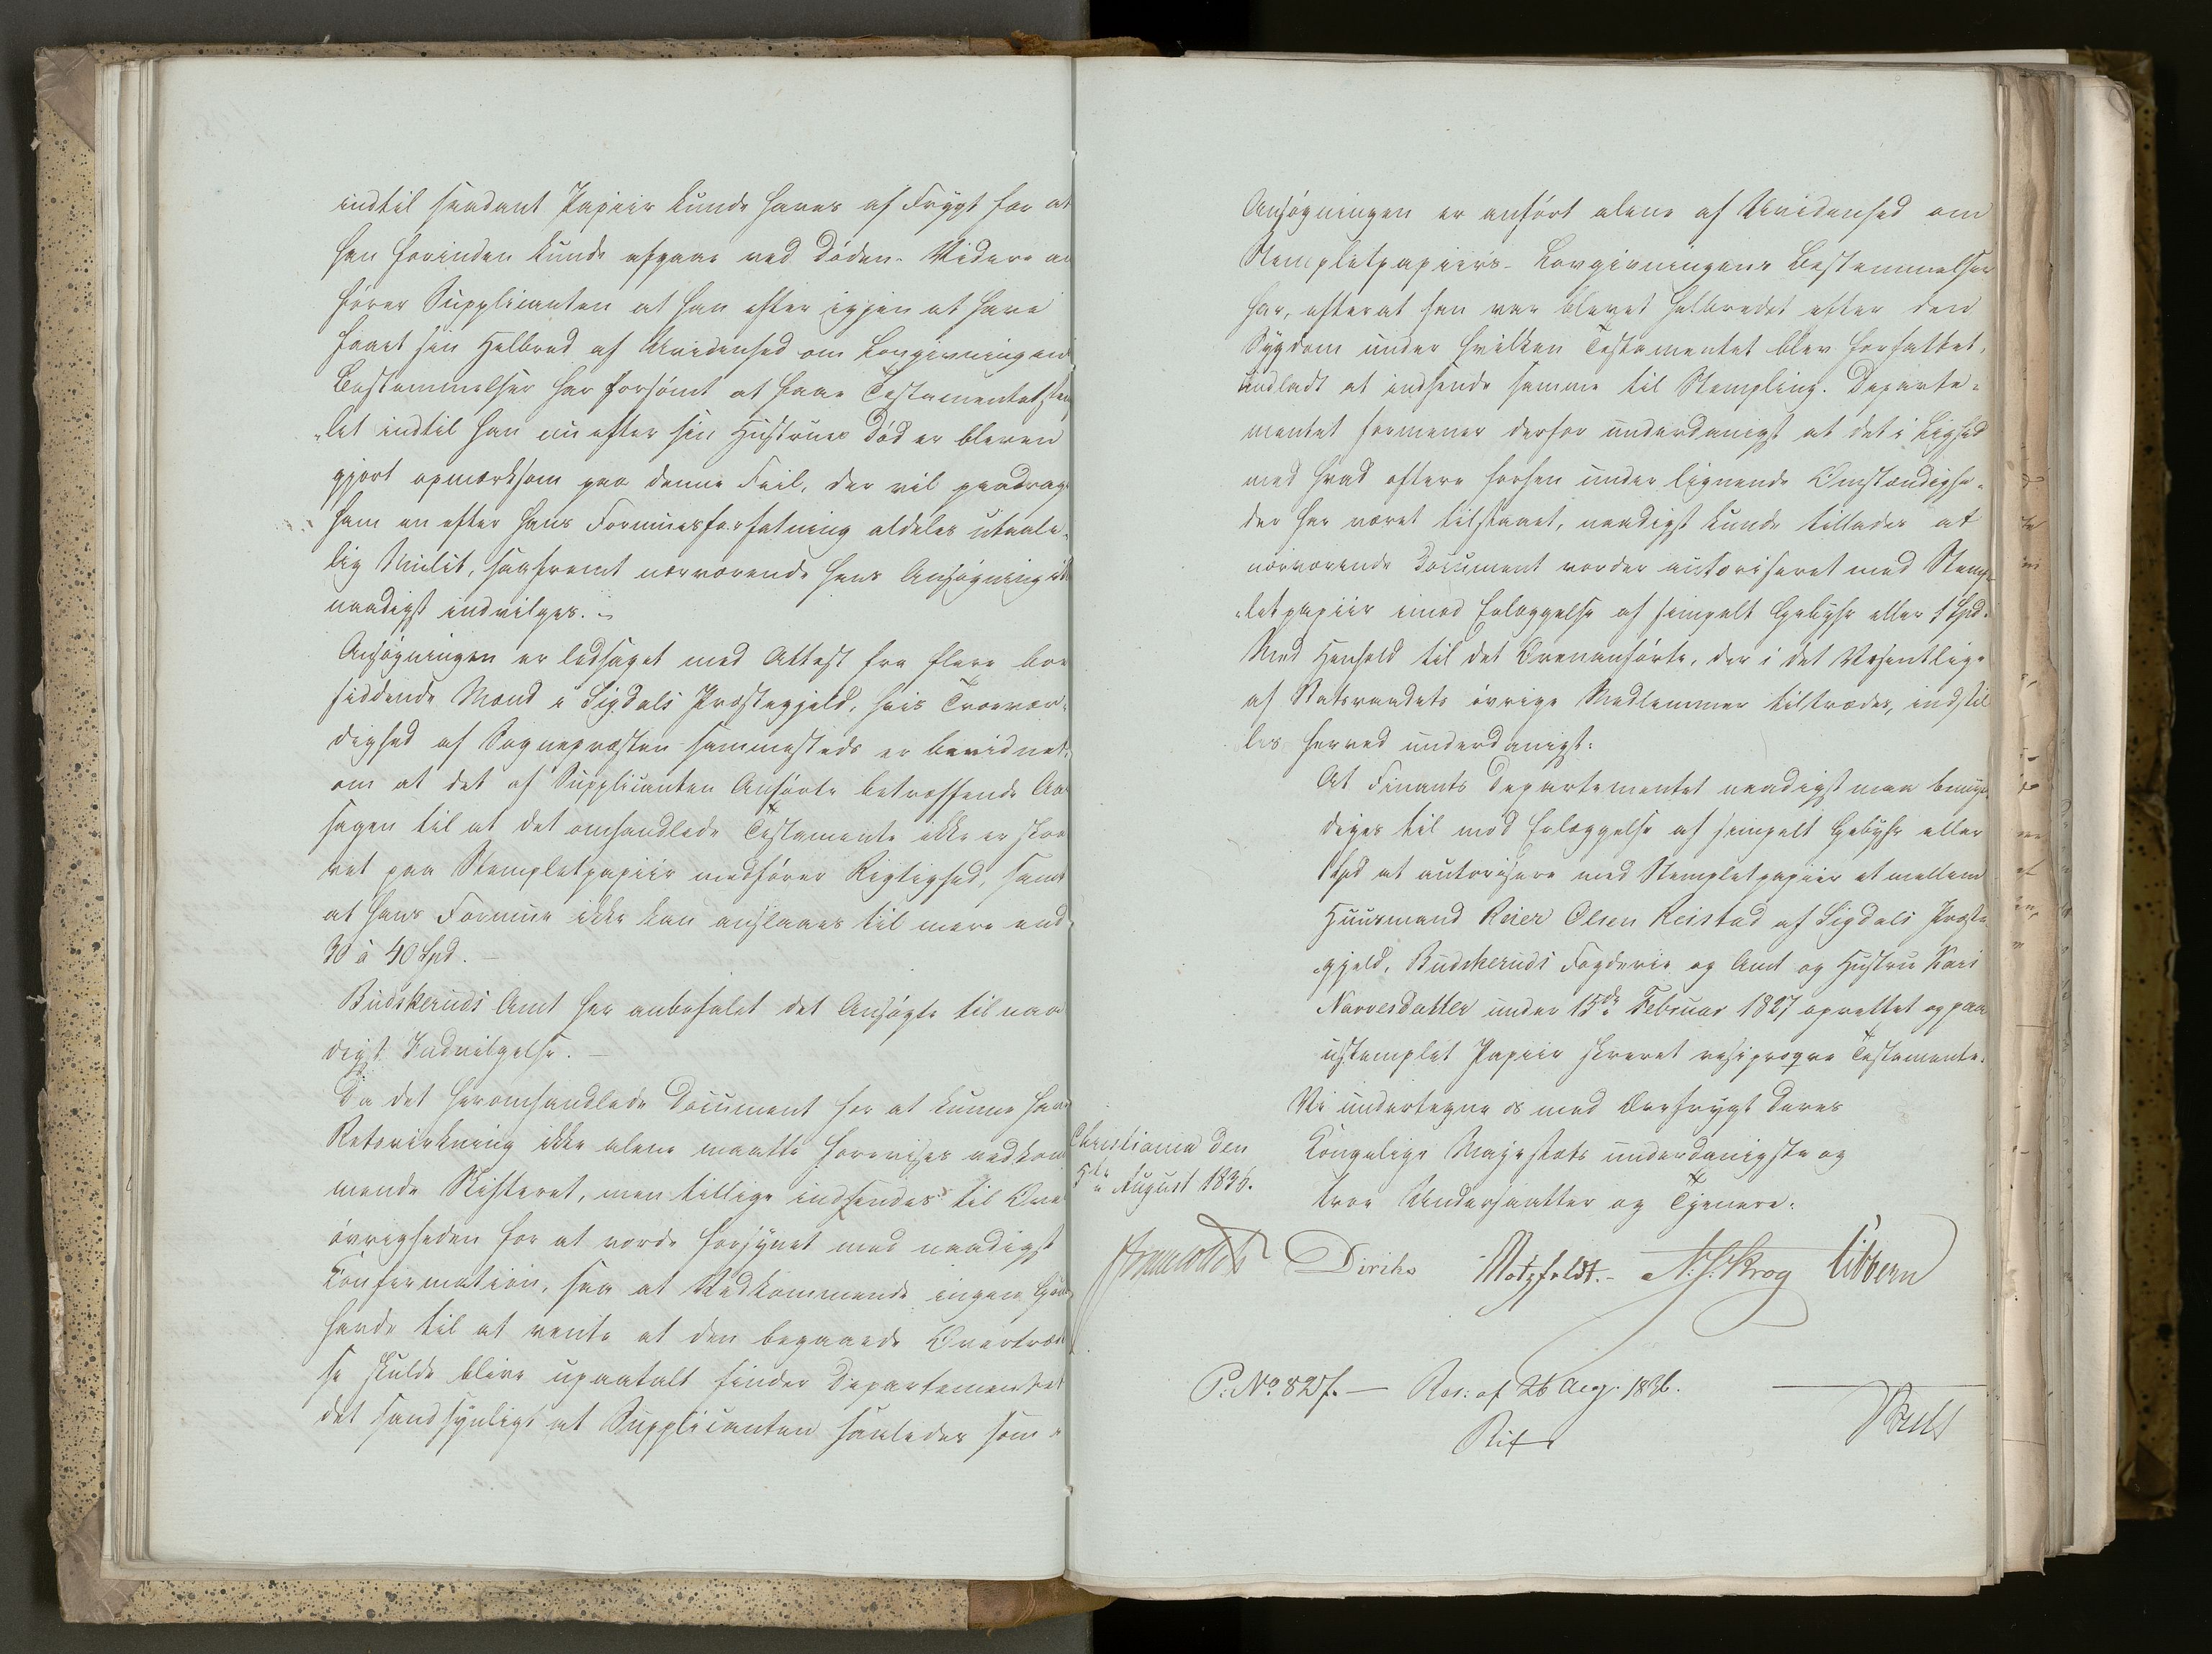 indtil saadant Papiir kunde haves af Frygt for at
han forinden kunde afgaae ved Døden. Videre an
fører Supplicanten at han efter igjen at have
faaet sin Helbred af Uvidenhed om Lovgivningens
Bestemmelser har forsømt at faae Testamentet stemp
let indtil han nu efter sin Hustrues Død er bleven
gjort opmærksom paa denne Feil, der vil paadrage
ham en efter hans Formuesforfatning aldeles utaale-
lig Mulct, saafremt nærværende hans Ansøgning ei
naadigst indvilges. -
Ansøgningen er ledsaget med Attest fra flere boe
siddende Mænd i Sigdals Præstegjeld, hvis Troevær-
dighed af Sognepræsten sammesteds er bevidnet,
om at det af Supplicanten Anførte betræffende Aar
sagen til at det omhandlede Testamente ikke er skre
vet paa Stempletpapiir medfører Rigtighed, samt
at hans Formue ikke kan anslaaes til mere end
30 à 40 Spd. -
Buskeruds Amt har anbefalet det Ansøgte til naa
digst Indvilgelse. -
Da det heromhandlede Document for at kunne have
Retsvirkning ikke alene maatte forevises vedkom
mende Skifteret, men tillige indsendes til Over
øvrigheden for at vorde forsynet med naadigst
Confirmation, saa at Vedkommende ingen Grund
havde til at vente at den begaaede Overtrædel
se skulde blive upaatalt finder Departementet
det sandsynligt at Supplicanten saaledes som i
Ansøgningen er anført alene af Uvidenhed om
Stempletpapiirs-Lovgivningens Bestemmelser
har, efterat han var blevet helbredet efter den
Sygdom under hvilken Testamentet blev forfattet,
undladt at indsende samme til Stempling. Departe-
mentet formener derfor underdanigst at det i Lighed
med hvad oftere forhen under lignende Omstændighe-
der har været tilstaaet, naadigst kunde tillades at
nærværende Document vorder autoriseret med Stemp-
letpapiir imod Erlæggelse af simpelt Gebyhr eller 1 Spd.
Med Henhold til det Ovenanførte, der i det Væsentlige
af Statsraadets øvrige Medlemmer tiltrædes, indstil
les herved underdanigst:
At Finants Departementet naadigst maa bemyn
diges til mod Erlæggelse af simpelt Gebyhr eller
1 Spd at autorisere med Stempletpapiir et mellem
Huusmand Reier Olsen Reistad af Sigdals Præste
gjeld, Budskeruds Fogderie og Amt og Hustru Kari
Narvesdatter under 15de Februar 1827 oprettet og paa
ustemplet Papiir skrevet resiproqve Testamente.
Vi undertegne os med Ærefrygt Deres
Kongelige Majestæts underdanigste og
troe Undersaatter og Tjenere.
Christiania den
5te August 1836.
Diriks Motzfeldt. - N. J. Krog Sibbern
P: No. 827. - Res: af 26 Aug. 1836.